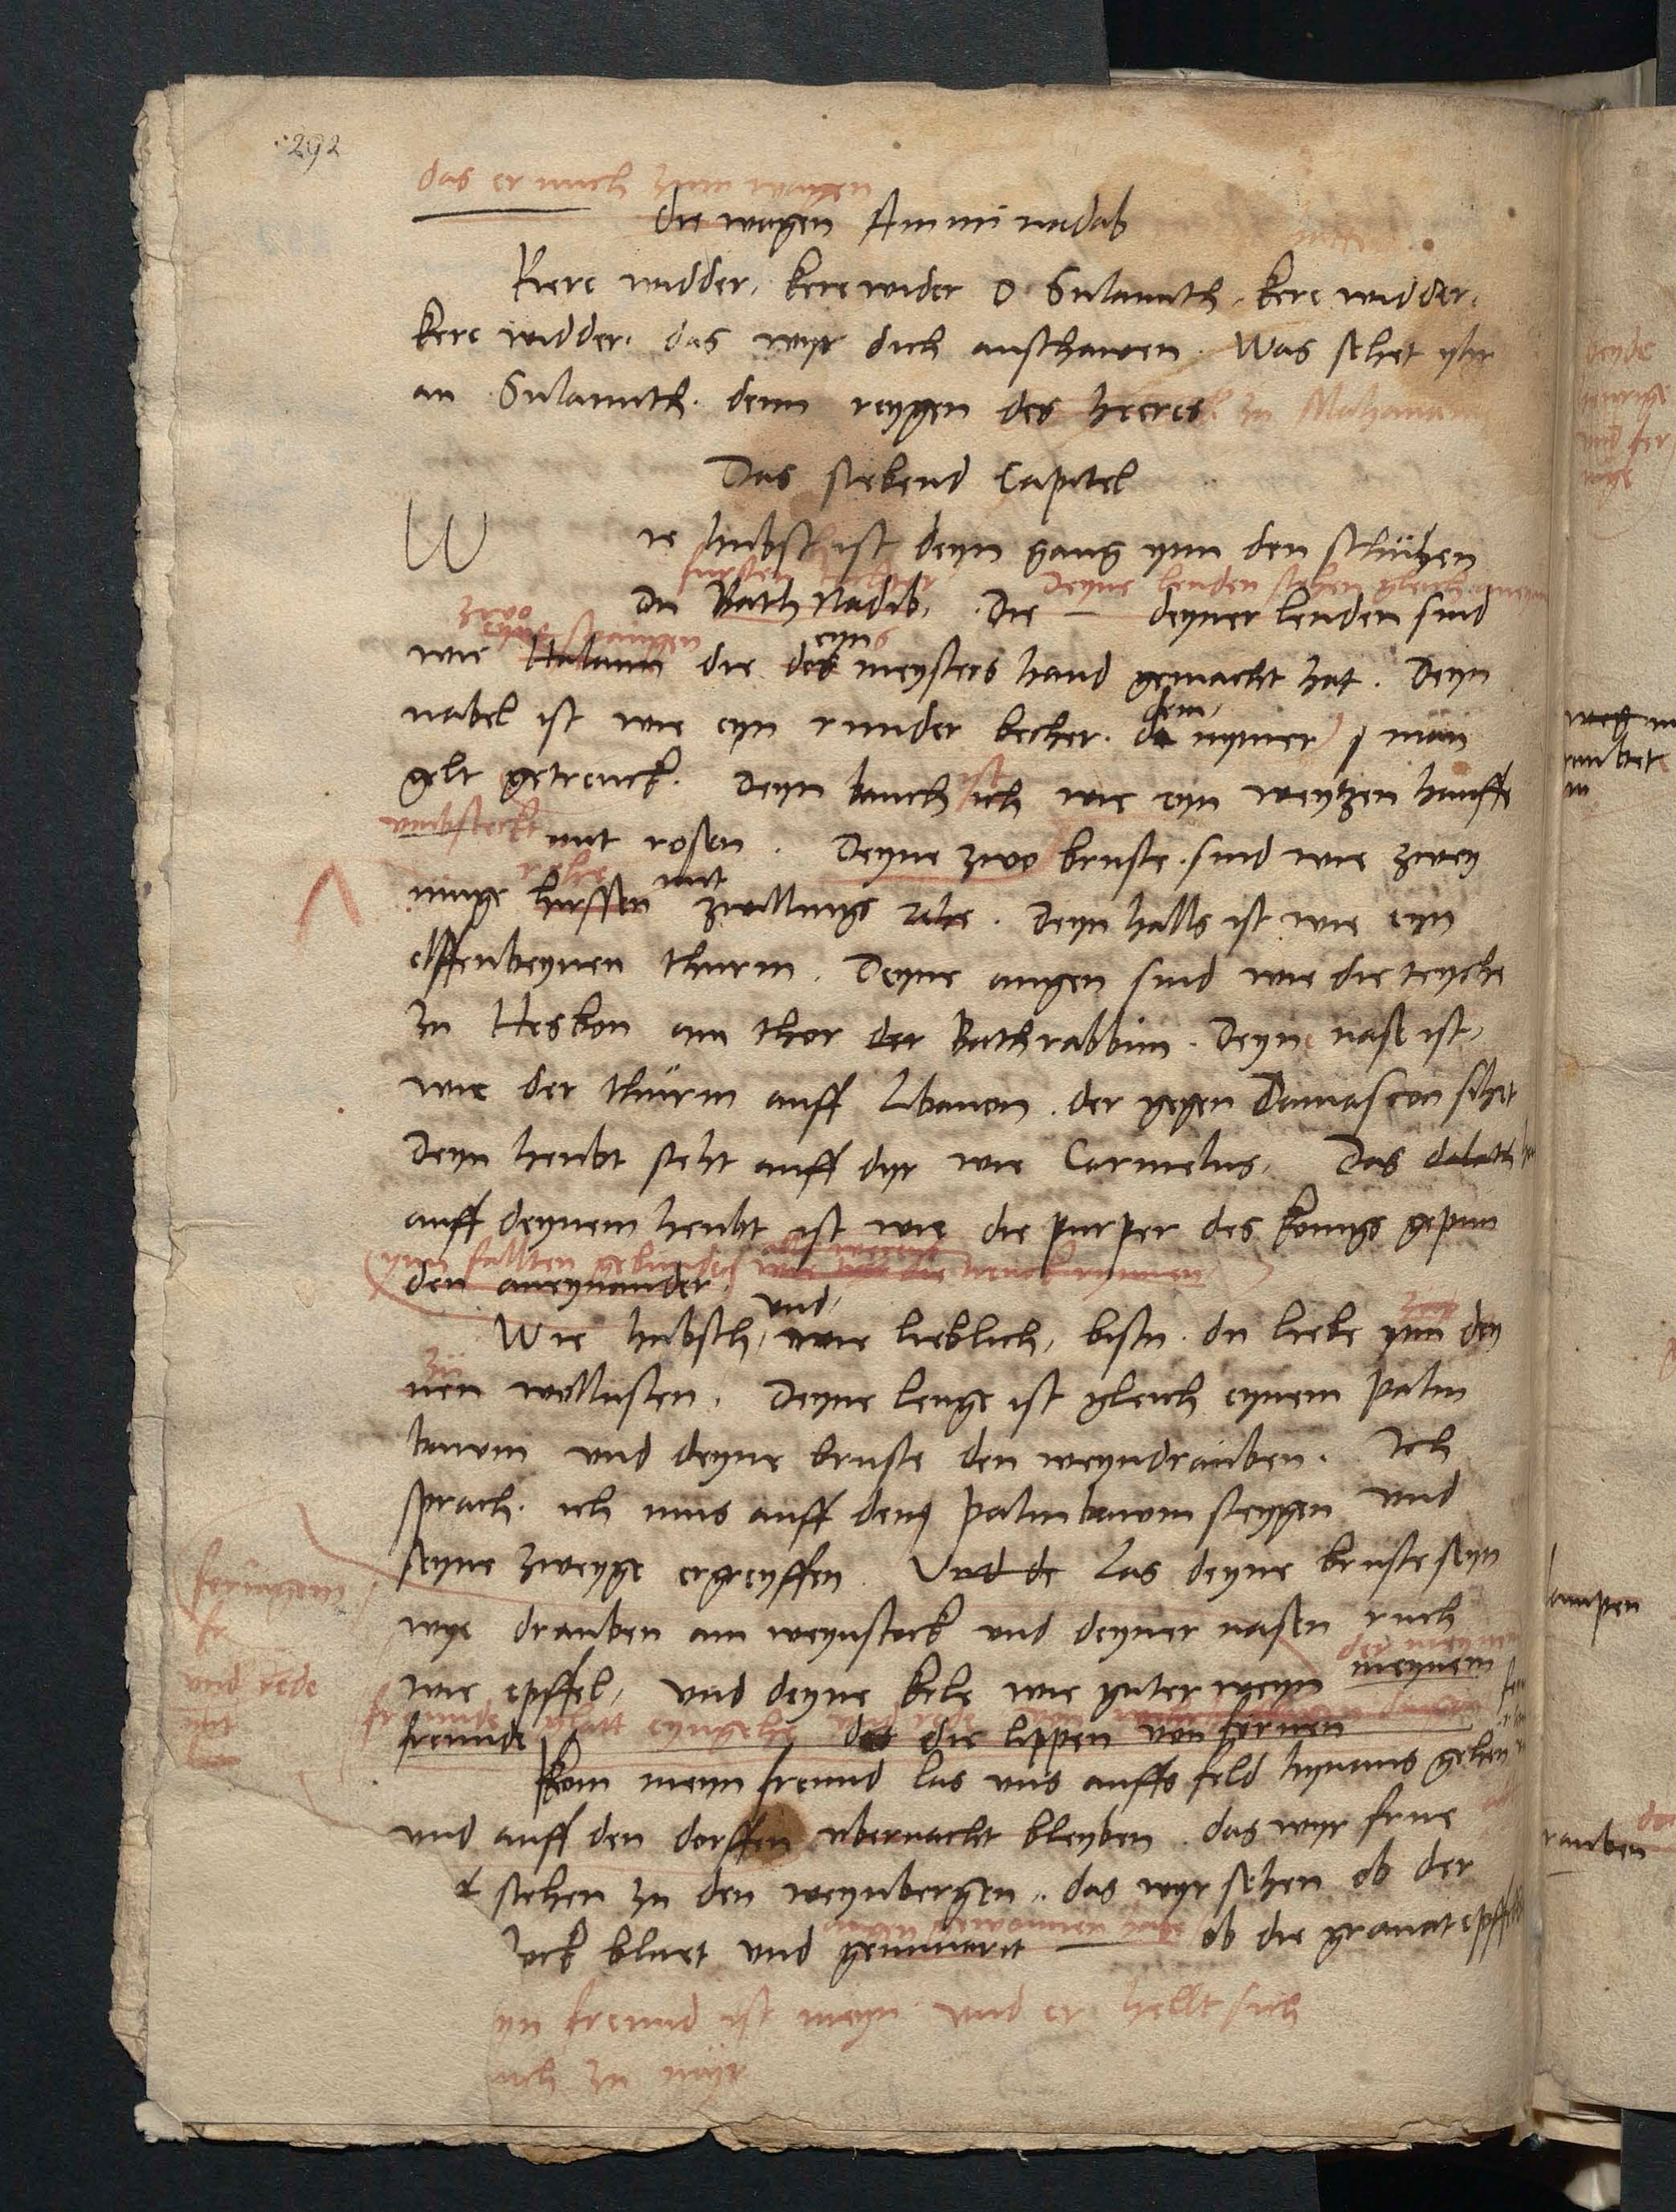 292
das er mich zum wagen
die wagen Ammi nadab
Kere widder, kere wider O Sulamith, kere widder,
kere widder, das wyr dich anschawen. Was sehet yhr
an Sulamith. denn reygen des heeres zu Mahanaim
Das siebend Capitel
W
ie hubsch ist deyn gang ynn den schuhen
fursten tochter Deyne lenden stehen gleich aneyn
du Bath Nadib, Die — deyner lenden sind
zwo spangen eyns
wie Halaim die des meysters hand gemacht hat. Deyn
dem
nabel ist wie eyn runder becher. da nymer man
ist
gelt getrenck. Deyn bauch ich wie eyn weytzen hauffe
umbsteckt mit rosen. Deyne zwo bruste sind wie zwey
rehe mit
iunge hirssen zwillings rehe. Deyn halls ist wie eyn
elffenbeynen thurm. Deyne augen sind wie die teyche
zu Hesbon am thor der Bathrabbim. Deyne nase ist,
wie der thurm auff Libanon. der gegen Damascon sihet
Deyn heubt steht auff dyr wie Carmelus. Das dalath
auff deynem heubt ist wie die purper des konigs gepun
ynn fallten gebunden
den aneynander.
und
Wie hubsch, wie lieblich, bistu. du liebe ynn dey
nen wollusten. Deyne lenge ist gleich eynem palm
bawm und deyne bruste den weyndrauben. Ich
sprach. ich mus auff den palmbawm steygen und
seyne zweyge ergreyffen. Und de Las deyne bruste seyn
wye drauben am weynstock und deyner nasen ruch
der meynem
wie epffel, und deyne kele wie guter weyn meynem
freunde glatt eyngehe
freunde das die lippen von fernen
und rede
Kom meyn freund las uns auffs feld hynaus gehen
und auff den dorffen ubernacht bleyben. das wyr frue
stehen zu den weynbergen, das wyr sehen ob der
augen gewonnen hab
ock bluet und gemmarit — ob die granatepffel
yn freund ist meyn und er hellt sich
uch zu myr